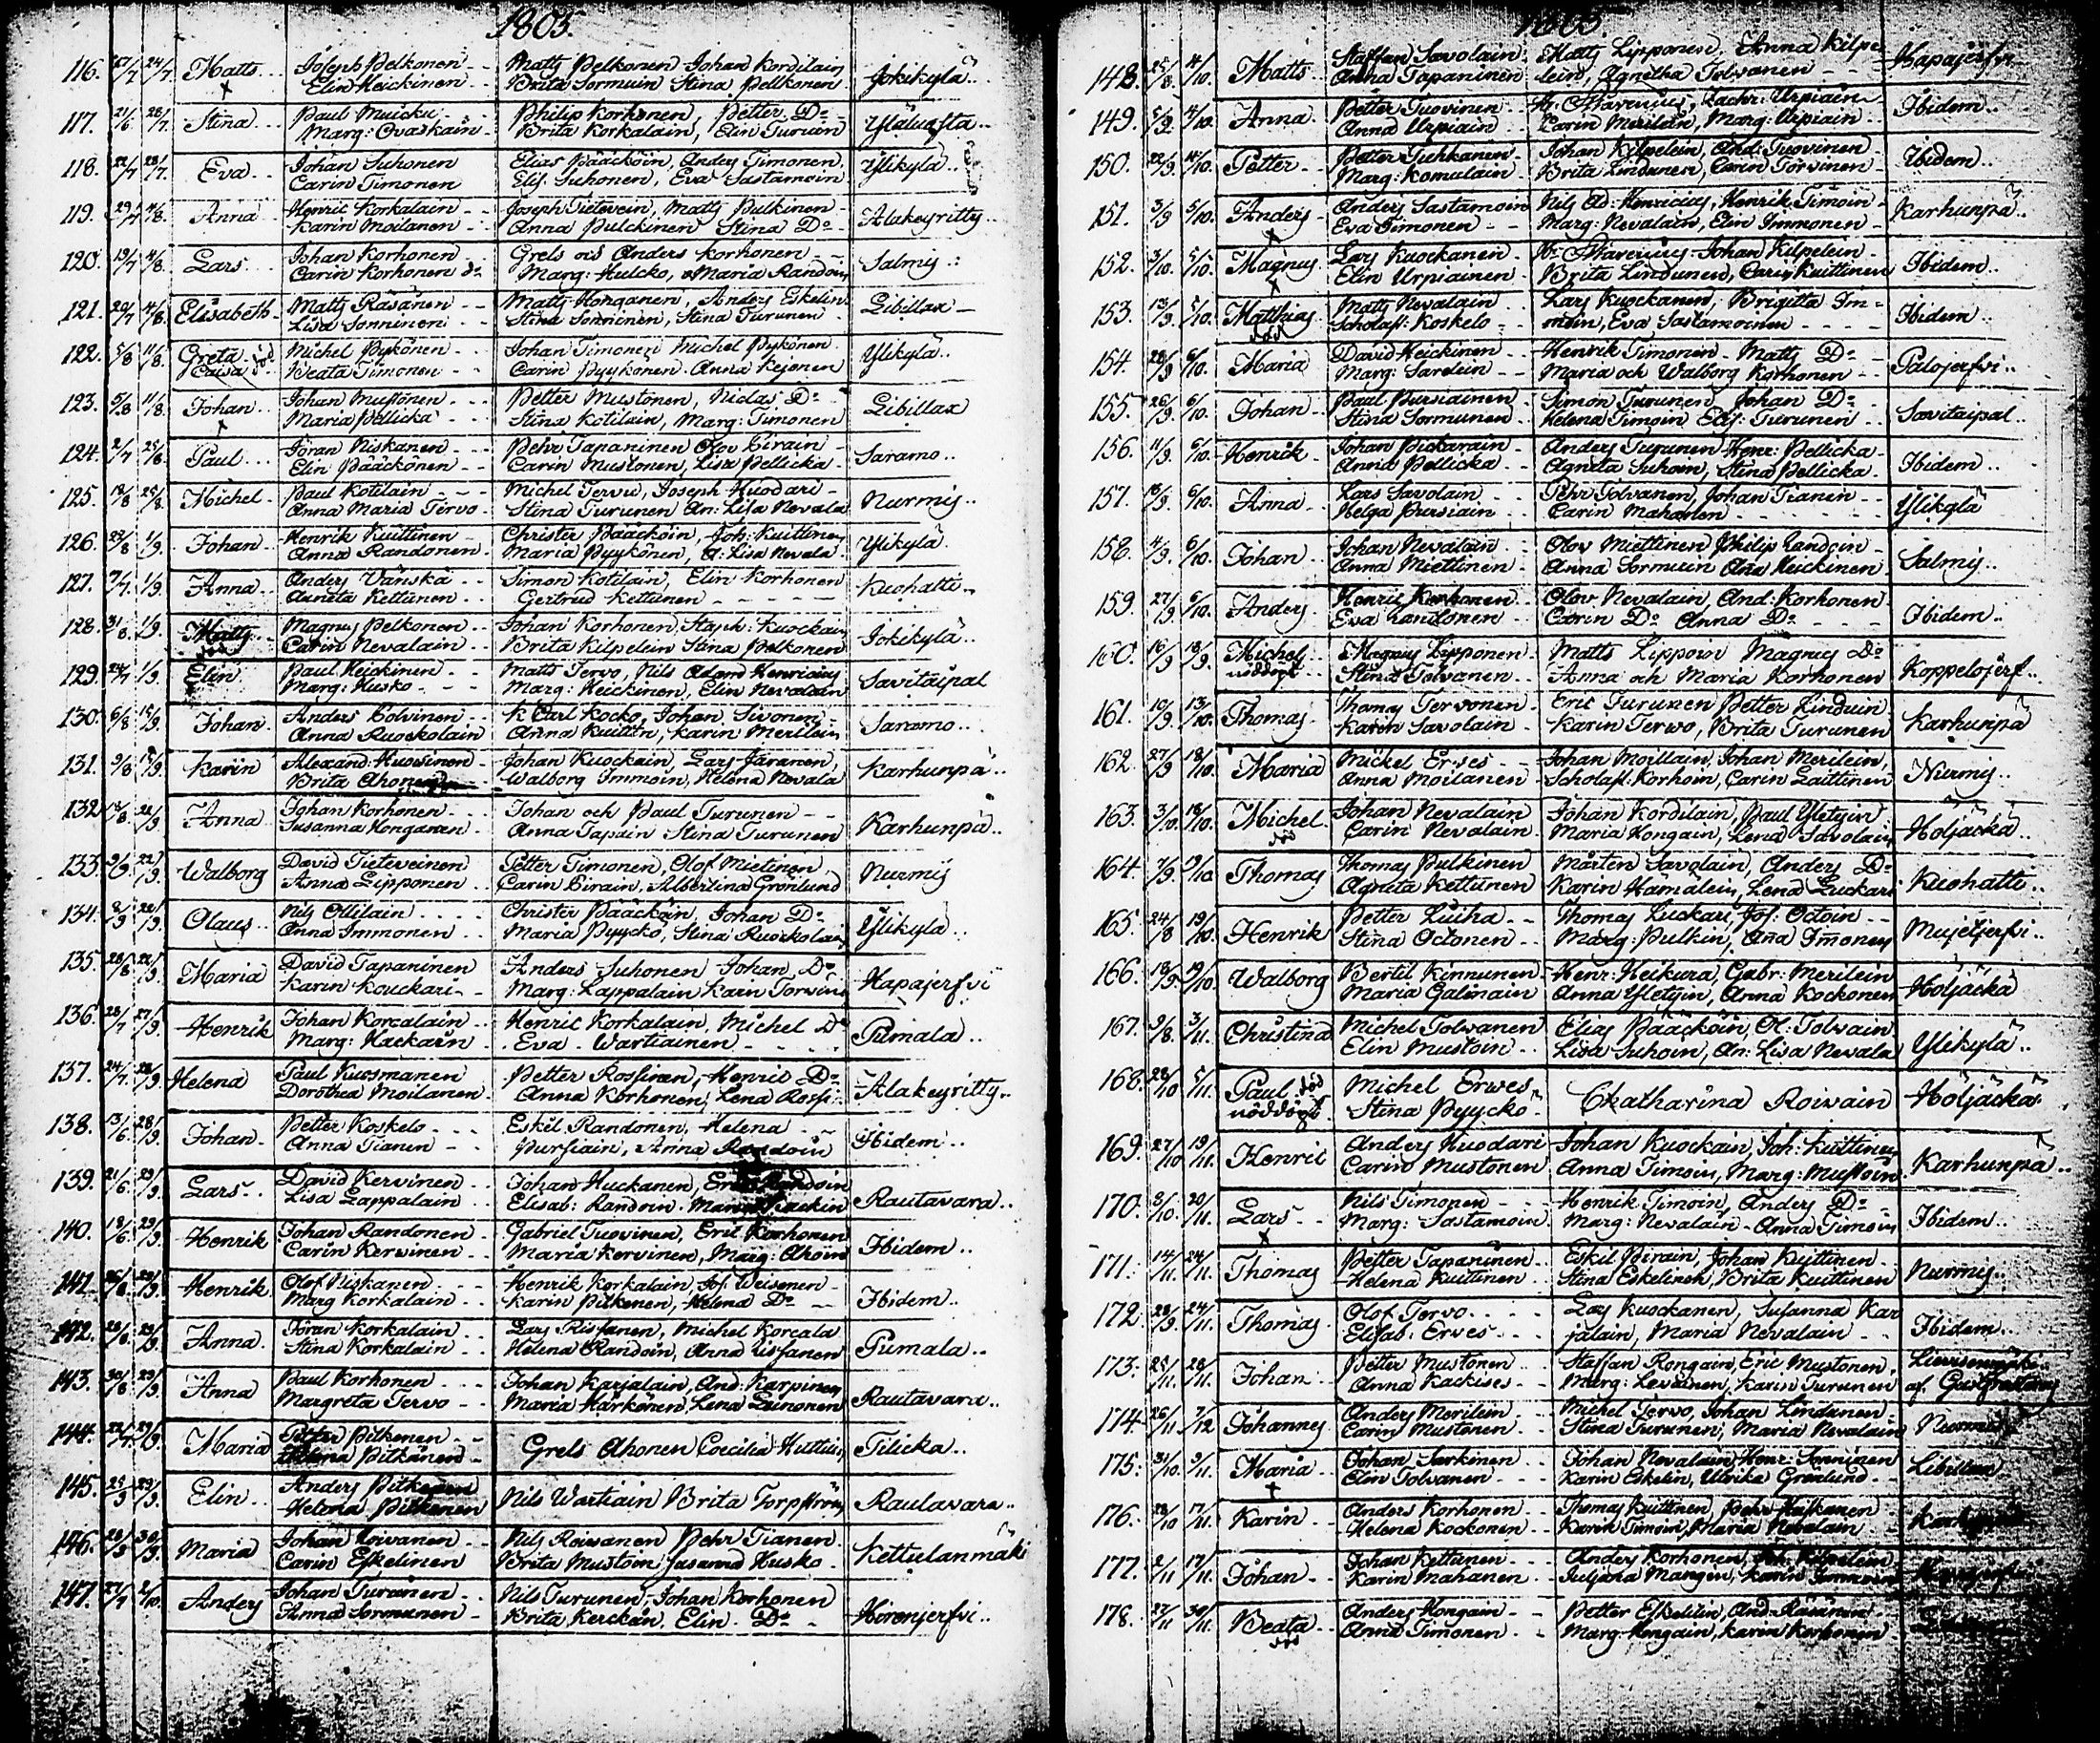 1805.
116. 17/7 24/7 Matts Joseph Pelkonen Matts Pelkonen Johan Kordilain Jokikylä
Elin Heickinen Brita Sormuin Stina Pellkonen
117. 21/6 28/7 Stina Paul Muicku Philip Korhonen, Petter Do Ylälu
Marg: Ovaskain Brita Korkalain, Elin Turuän
118. 22/7 28/7 Eva Johan Suhonen Elias Pääcköin, Anders Timonen, Ylikylä
Carin Timonen Elis. Suhonen, Eva Sastamoin
119. 29/7 4/8 Anna Henric Korkalain Joseph Tietevein, Matts Pulkinen Alakeyritty
Karin Moilanen Anna Pulckinen Stina Do
120. 19/7 4/8 Lars Johan Korhonen Grels och Anders Korhonen Salmis
Carin Korhonen Marg: Hulcko, Maria Randoin
121. 20/7 4/8 Elisabeth Matts Räsänen Matts Honganen, Anders Eskelin Libillax
Lisa Sonninen Stina Sonninen, Stina Turunen
122. 5/8 11/8 Greta Michel Pykönen Johan Timonen Michel Pykönen Ylikylä
Caisa död Beata Timonen Carin Pyykonen Anna Kejonen
123. 5/8 11/8 Johan Johan Mustonen Petter Mustonen, Niclas Do Libillax
Maria Pellicka Stina Kotilain, Marg: Timonen
124. 2/7 25/8 Paul Jöran Niskanen Pehr Tapaninen Olov Pirain Saramo
Elin Pääckönen Carin Mustonen, Lisa Pellicka
125. 18/8 25/8 Michel Paul Kotilain Michel Tervo, Joseph Huodari Nurmis
Anna Maria Tervo Stina Turunen An: Lisa Nevala
126. 23/8 1/9 Johan Henrik Kuittinen Christer Pääcköin, Joh: Kuittinen Ylikylä
Anna Randonen Maria Pyykönen, A: Lisa Nevala
127. 7/7 1/9 Anna Anders Vänskä Simon Kotilain, Elin Korhonen Kuohatti
Agneta Kettunen Gertrud Kettunen
128. 31/8 1/9 Matts Magnus Pelkonen Johan Korhonen, Staph: Kuockain Jokikylä
död Carin Nevalain Brita Kilpelein Stina Pelkonen
129. 24/7 1/9 Elin Paul Heickinen Matts Tervo, Nils Adam Henricius Savitaipal
Marg: Husko Marg: Heickinen, Elin Nevalain
130. 6/8 15/9 Johan Anders Tolvinen K Carl Kocko, Johan Sivonen Saramo
Anna Ruockolain Anna Kuittin, Karin Merilein
131. 9/8 15/9 Karin Alexand: Huovinen Johan Kuockain, Lars Järanen, Karhunpä
Brita Ahonen Walborg Immoin, Helena Nevala
132. 18/8 22/9 Anna Johan Korhonen Johan och Paul Turunen Karhunpä
Susanna Honganen Anna Tapain Stina Turunen
133. 9/9 22/9 Walborg David Tieteveinen Petter Timonen, Olof Mietinen Nurmis
Anna Lipponen Carin Pirain, Albertina Grönlund
134. 8/9 22/9 Olaus Nils Ollilain Christer Pääcköin, Johan Do Ylikylä
Anna Immonen Maria Pyyckö, Stina Ruockolain
135. 28/8 22/9 Maria David Tapaninen Anders Suhonen Johan Do Hapajerfvi
Karin Kouckari Marg: Lappalain Karin Torvin
136. 28/7 27/9 Henrik Johan Korcalain Henric Korkalain, Michel Do Pumala
Marg: Hackarin Eva Wartiainen
137. 24/7 28/9 Helena Paul Kuosmanen Petter Rossinen, Henric Do Alakeyritty
Dorothea Moilanen Anna Korhonen, Lena Rossi
138. 13/6 28/9 Johan Petter Koskelo Eskil Randonen, Helena Ibidem
Anna Tianen Pursiain, Anna Randoin
139. 21/6 29/9 Lars David Kervinen Johan Huckanen, Randoin Rautavara
Lisa Lappalain Elisab: Randoin
140. 18/6 29/9 Henrik Johan Randonen Gabriel Tuovinen, Eric Korhonen Ibidem
Carin Kervinen Maria Kervinen, Marg: Ahoin
141. 26/8 29/9 Henrik Olof Niskanen Henrik Korkalain, Jos. Weisenen Ibidem
Marg Korkalain Karin Pitkenen, Helena Do
142. 28/8 29/9 Anna Jöran Korkalain Lars Rissanen, Michel Korcala Pumala
Stina Korkalain Helena Randoin, Anna Rissanen
143. 30/8 29/9 Anna Paul Korhonen Johan Karjalain, And: Karpinen Rautavara
Margreta Tervo Maria Härkönen, Lena Leinonen
144. 22/7 29/9 Maria Petter Pitkenen Grels Ahonen Coecilia Huttuin Tilicka
Helena Pitkänen
145. 25/9 29/9 Elin Anders Pitkenen Nils Wartiain Brita Torpström Rautavara
Helena Pitkenen
146. 28/9 30/9 Maria Johan Roivanen Nils Roiwanen Pehr Tianen Kettulanmäki
Carin Eskelinen Brita Mustoin Susanna Husko
147. 27/7 2/10. Anders Johan Turunen Nils Turunen, Johan Korhonen Hirvenjerfvi
Anna Sormunen Brita Kerckän, Elin Do
1805.
148. 25/8. 4/10. Matts Staffan Savolain Matts Lipponen, Anna Kilpe Hapajerfvi
Anna Tapaninen lein, Agnetha Tolvanen
149. 5/9. 4/10. Anna Petter Tuovinen Zachr: Urpiain Ibidem
Anna Urpiain Carin Merilein, Marg: Urpiain
150. 22/9. 4/10. Petter Petter Tuhkanen Johan Kilpelein, And: Tuovinen Ibidem
Marg: Komulain Brita Lindunen, Carin Torvinen
151. 3/9 5/10. Anders Anders Sastamoin Nils Ad: Henricius, Henrik Timoin Karhunpä
Eva Timonen Marg: Nevalain, Elin Immonen
152. 3/10. 5/10. Magnus Lars Kuockanen Johan Kilpelein Ibidem
Elin Urpiainen Brita Lindunen, Carin Kuittinen
153. 13/9. 5/10. Matthias Matts Nevalain Lars Kuockanen, Brigitta Im- Ibidem
död Scholast: Koskelo moin, Eva Sastamoinen
154. 28/9 6/10. Maria David Heickinen Henrik Timonen Matts Do Palojerfvi
Marg: Sarelein Maria och Walborg Korhonen
155. 26/9. 6/10. Johan Paul Pursiainen Simon Turunen, Johan Do Savitaipal
Stina Sormunen Helena Timoin Elis: Turunen
156. 11/9. 6/10. Henrik Johan Pickarain Anders Turunen Henr: Pellicka Ibidem
Anna Pellicka Agneta Suhoin, Stina Pellicka
157. 18/9. 6/10. Anna Lars Savolain Pehr Tolvanen, Johan Tianen Ylikylä
Helga Pursiain Carin Mahonen
158. 4/9. 6/10. Johan Johan Nevalain Olov Miettinen Philip Randoin Salmis
Anna Miettinen Anna Sormuin Ana Heickinen
159. 27/9 6/10. Anders Henric Korhonen Olov Nevalain, And: Korhonen Ibidem
Eva Randonen Carin Do Anna Do
160. 16/9 18/9. Michel Magnus Lipponen Matts Lippoin Magnus Do Koppelojerf
nöddöpt Stina Tolvanen Anna och Maria Korhonen
161. 10/9. 13/10. Thomas Thomas Tervonen Eric Turunen Petter Linduin Karhunpä
Karin Savolain Karin Terwo, Brita Turunen
162. 27/9 18/10. Maria Mickel Erves Johan Moillain, Johan Merilein, Nurmis
Anna Moilanen Scholast: Korhoin, Carin Laittinen
163. 3/10. 18/10. Michel Johan Nevalain Johan Kordilain, Paul Yletyin Höljäckä
död Carin Nevalain Maria Hongain, Lena Savolain
164. 7/9. 19/10 Thomas Thomas Pulkinen Mårten Savolain, Anders Do Kuohatti
Agneta Kettunen Karin Hamälein, Lena Luckari
165. 24/8 19/10. Henrik Petter Luiha Thomas Luckari, Jos: Octoin Mujejerfvi
Stina Octonen Marg: Pulkin, Ana Immonen
166. 18/9. 19/10. Walborg Bertil Kinnunen Henr: Heikura, Gabr: Merilein Höljäckä
Maria Galinain Anna Yletyin, Anna Kockonen
167. 9/8. 3/11. Christina Michel Tolwanen Elias Pääcköin, Ol: Tolvain Ylikylä
Elin Mustoin Lisa Suhoin, An: Lisa Nevala
168. 28/10 5/11. Paul död Michel Erwes Chatharina Roivain Höljäckä
nöddöpt Stina Pyyckö
169. 27/10 19/11. Henric Anders Huodari Johan Kuockain, Joh: Kuittinen Karhunpä
Carin Mustonen Anna Timoin, Marg: Mustoin
170. 3/10. 20/11. Lars Nils Timonen Henrik Timoin, Anders Do Ibidem
Marg: Sastamoin Marg: Nevalain Anna Timoin
171. 14/11. 24/11. Thomas Petter Tapaninen Eskil Pirain, Johan Kuittinen Nurmis
Helena Kuittinen Stina Eskelinen, Brita Kuittinen
172. 28/9. 24/11. Thomas Olof Tervo Lars Kuockanen, Susanna Kar Ibidem
Elisab: Erves jalain, Maria Nevalain
173. 25/11. 28/11. Johan Petter Mustonen Staffan Rongain, Eric Mustonen,
Anna Kackises Marg: Levainen, Karin Turunen af
174. 26/11 7/12 Johannes Anders Merilein Michel Tervo, Johan Lindunen Nurmis
Carin Mustonen Stina Turunen, Maria Nevalain
175. 31/10. 3/11. Maria Johan Sarkinen Johan Nevalain Henr: Sonninen Libillax
Elin Tolvanen Karin Eskelin, Ulrika Grönlund
176. 28/10 17/11. Karin Anders Korhonen Thomas Kuittinen, Pehr Heiskanen
Helena Kockonen Karin Timoin, Maria Nevalain
177. 2/11 17/11. Johan Johan Kettunen Anders Korhonen, Joh: Kilpelein
Karin Mahanen Juliana Mangin, Karin
178. 27/11 30/11. Beata Anders Hongain Petter Eskelin, And: Räsänen
död Anna Timonen Marg: Hongain, Karin Korhonen